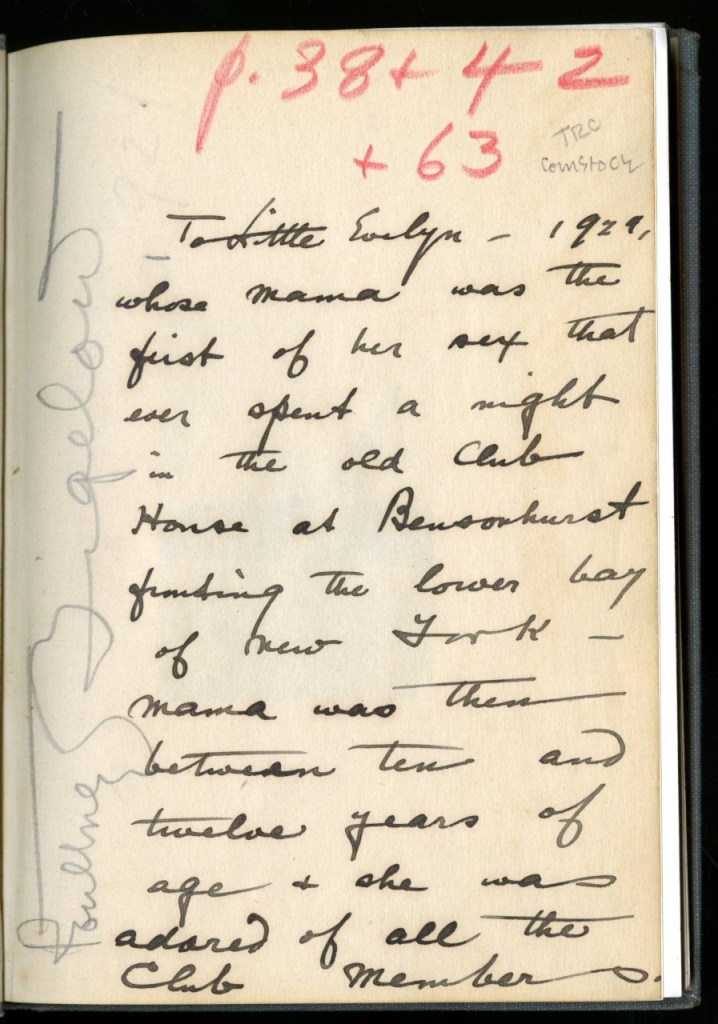 p. 38 + 42
+ 63
TRC
Comstock
To Little Evelyn — 1929,
whose mama was the
first of her sex that
ever spent a night
in the old Club
House at Bensonhurst
fronting the lower bay
of New York —
mama was then
between ten and
twelve years of
age + she was
adored of all the
Club Members.
Poultney Bigelow